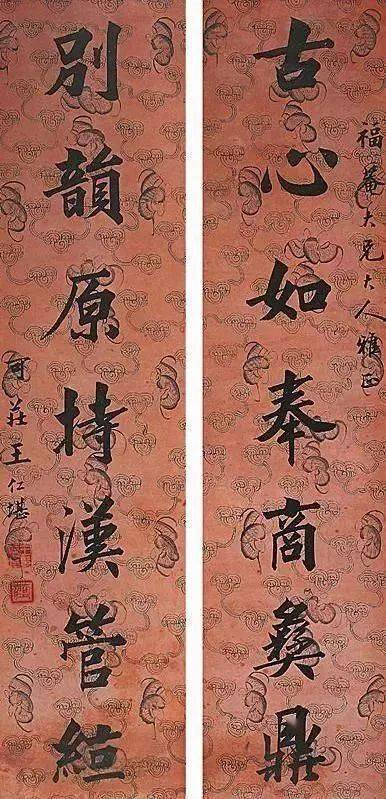 福菴大兄大人雅正
古心如奉商彝鼎
別韻原持漢管絃
可莊王仁堪